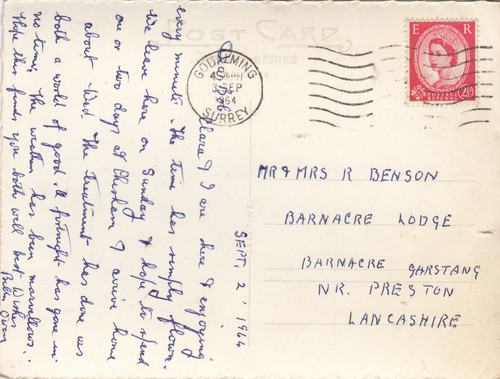 POST CARD
GODALMING
SEP
1964
SURREY
E R
POSTAGE
REVENUE
2½D
SEPT. 2' 1964
Clara & I are here & enjoying
every minute. The time has simply flown.
We leave here on Sunday & hope to spend
one or two days at Chesham & arrive home
about Wed. The treatment has done us
both a world of good. A fortnight has gone in
no time. The weather has been marvellous.
Hope this finds you both well. Best Wishes
MR & MRS R BENSON
BARNACRE LODGE
BARNACRE GARSTANG
NR. PRESTON
LANCASHIRE